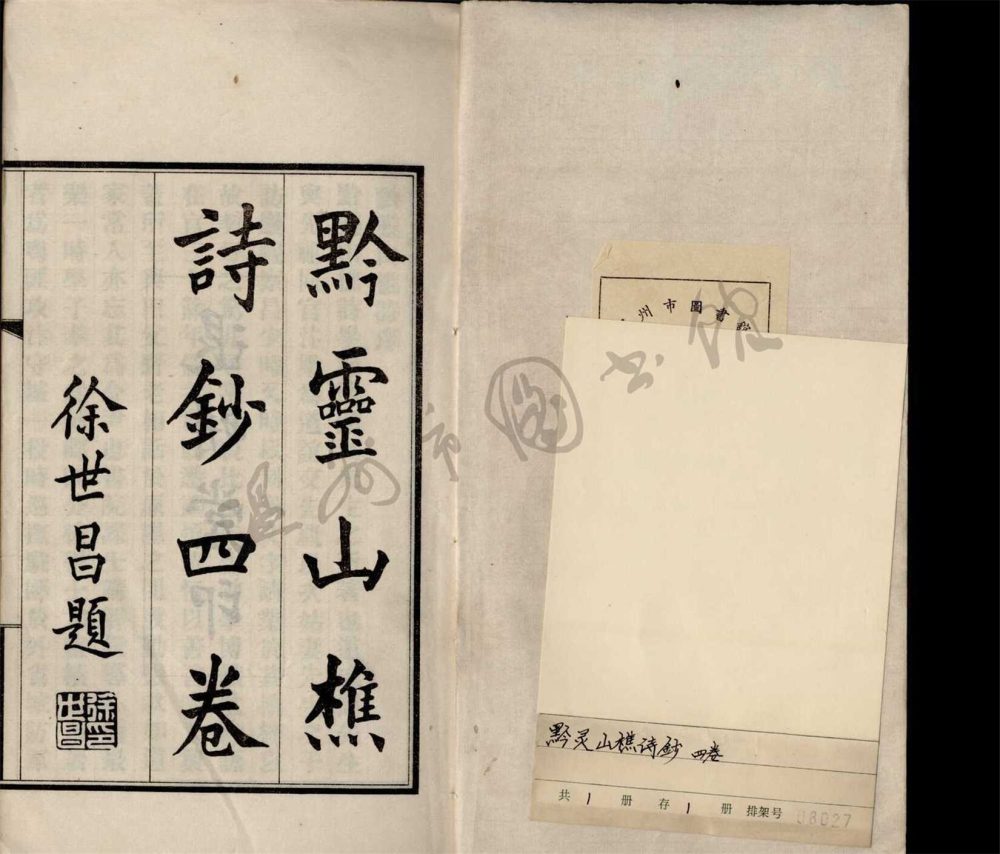 黔靈山樵
詩鈔四卷
徐世昌題
徐世昌印
州市圖書館
温州市圖书馆
黔灵山樵诗鈔 四卷
共 1 册 存 1 册 排架号 08027